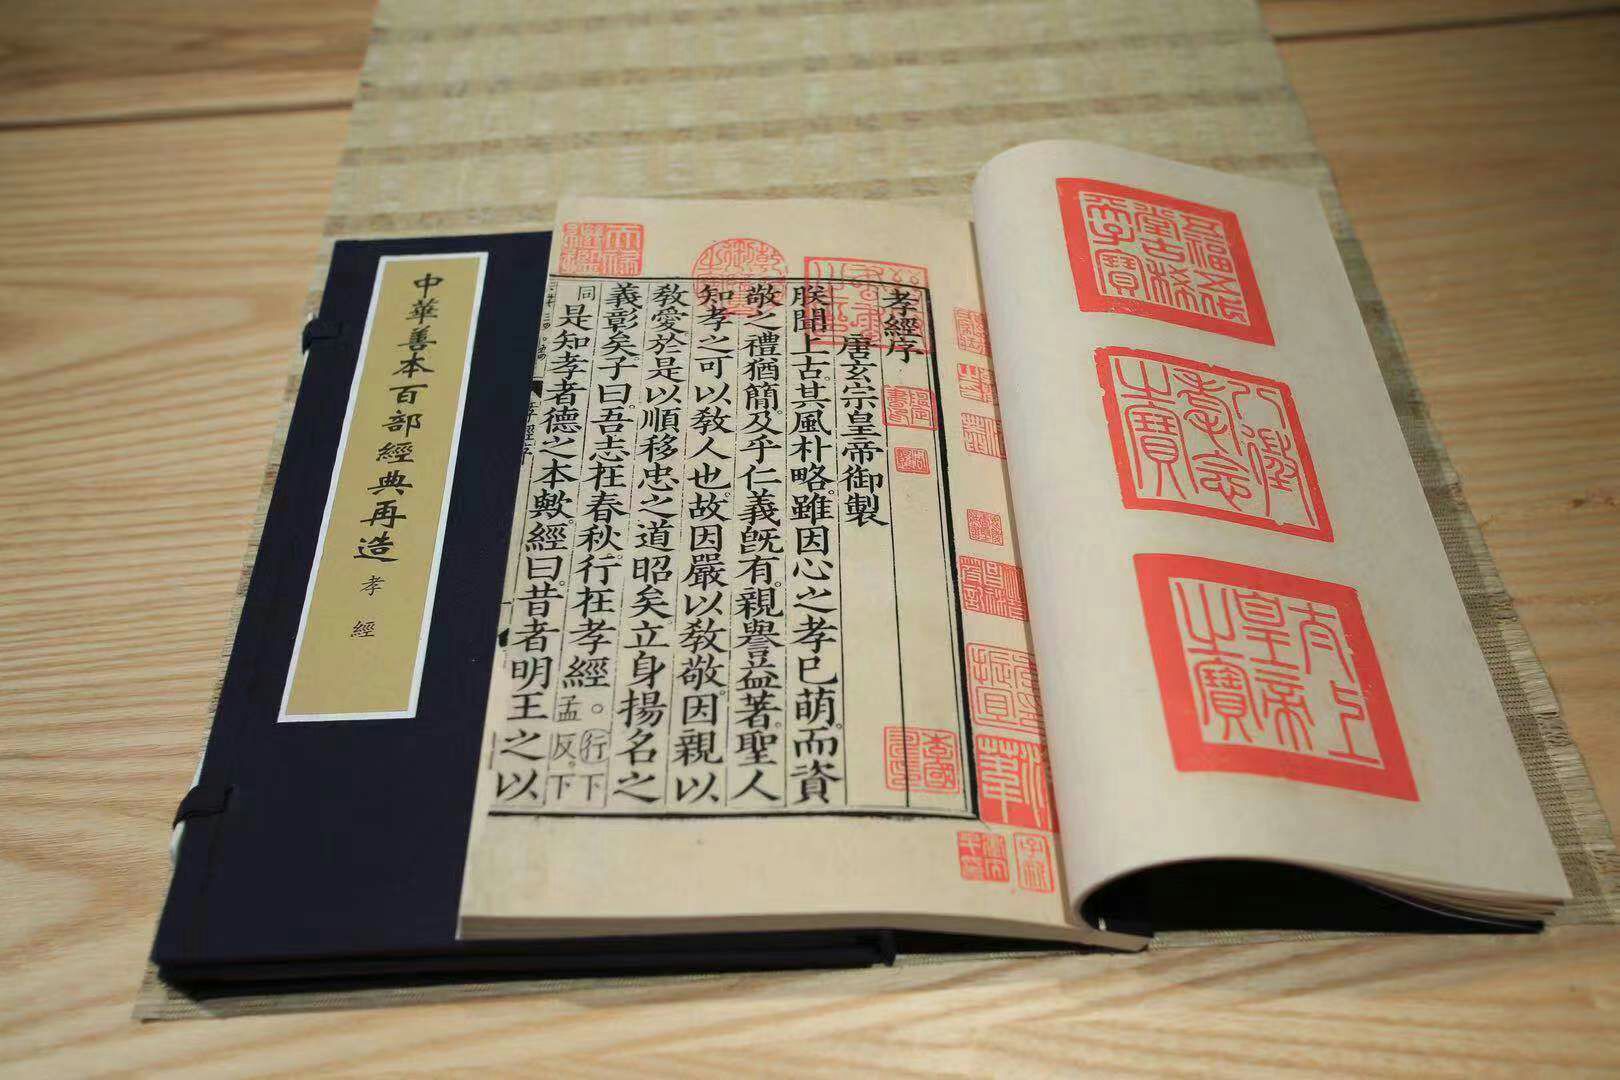 五福五代
堂古稀
天子寶
八徵
耄念
之寶
太上
皇帝
之寶
孝經序
唐玄宗皇帝御製
朕聞上古。其風朴略。雖因心之孝已萌。而資
敬之禮猶簡。及乎仁義旣有。親譽益著。聖人
知孝之可以敎人也。故因嚴以敎敬。因親以
敎愛。於是以順移忠之道昭矣。立身揚名之
義彰矣。子曰。吾志在春秋。行在孝經。行下孟反。下
同是知孝者德之本歟。經曰。昔者明王之以
天祿
繼鑑
中華善本百部經典再造
孝經